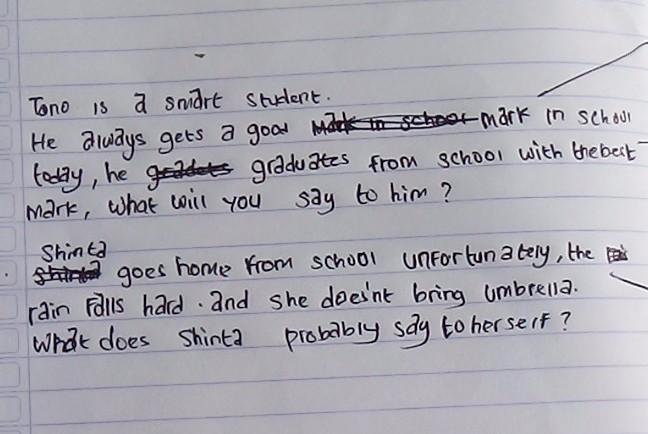 Tono is a smart student.
He always gets a good mark in school
today, he graduates from school with the best
mark, what will you say to him ?
Shinta
goes home from school unfortunately, the
rain falls hard. and she does'nt bring umbrella.
What does Shinta probably say to herself ?